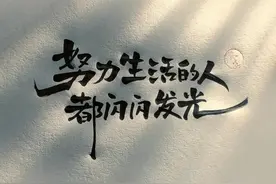 努力生活的人
都闪闪发光